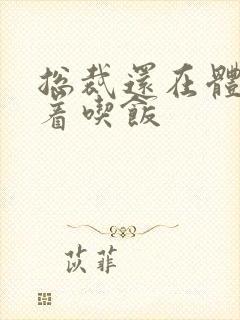 总裁還在體
着喫飯
苡菲